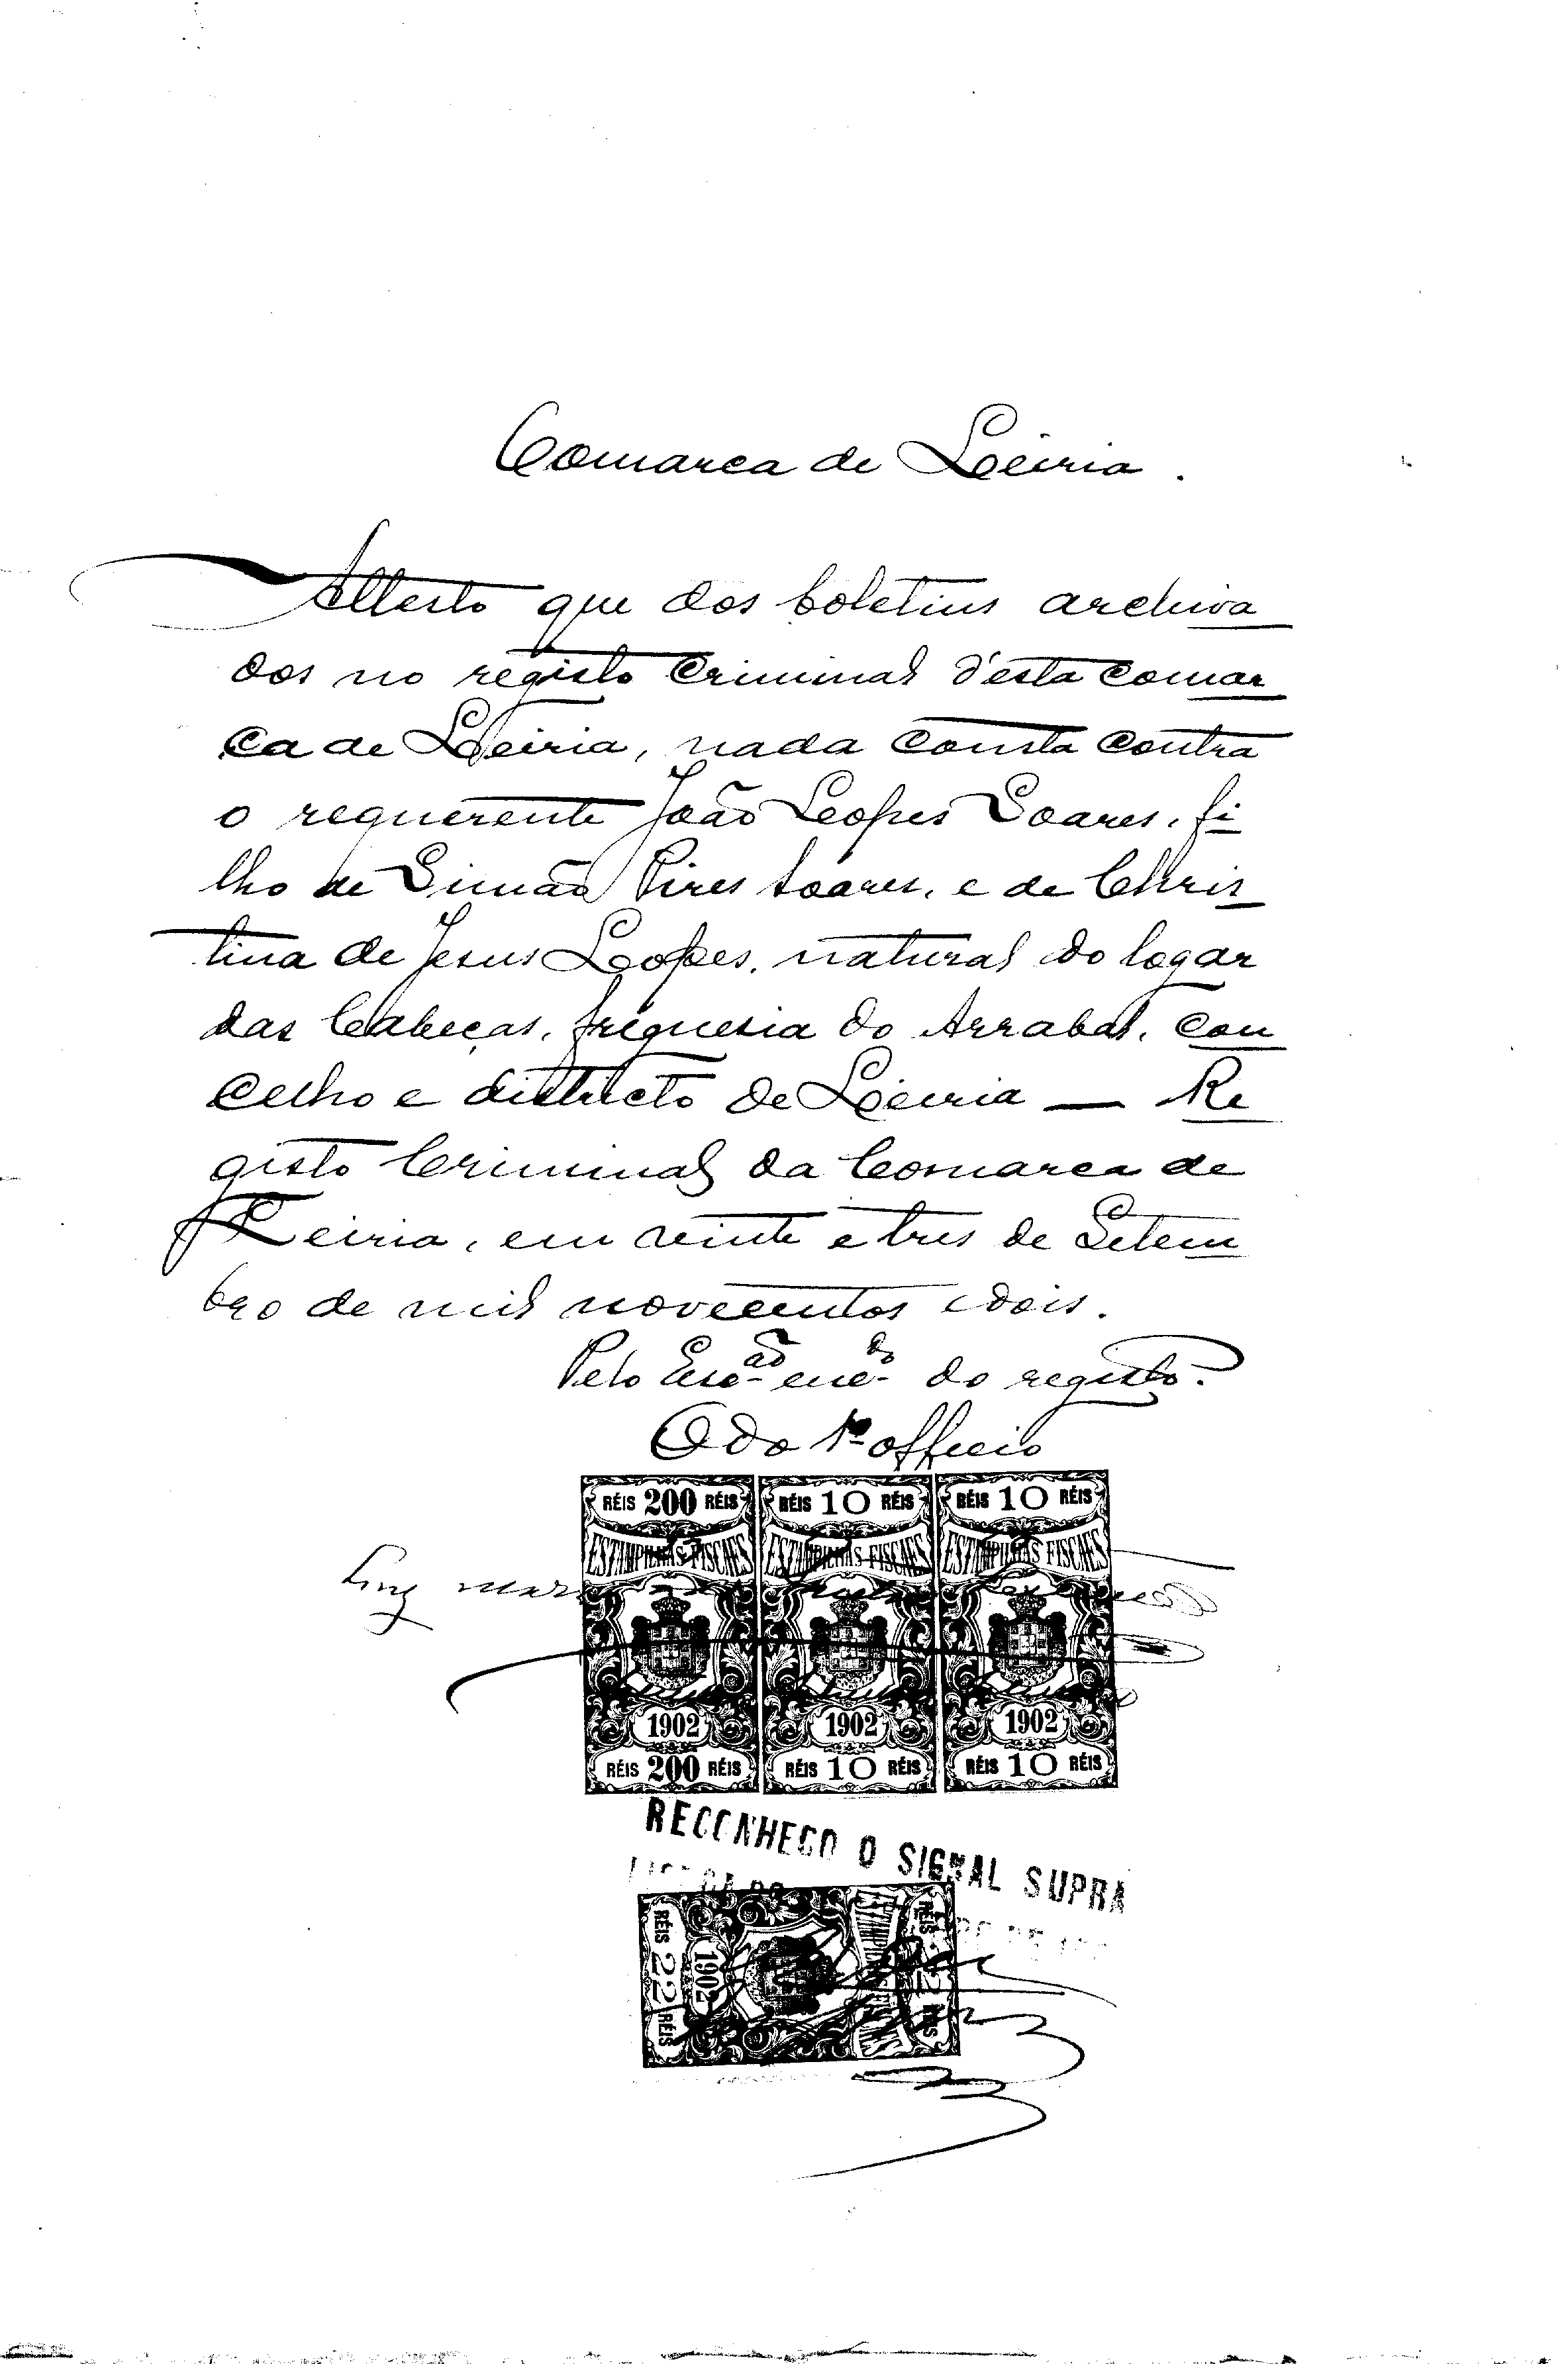 Comarca de Leiria.
Attesto que dos boletins archiva
dos no registo criminal d'esta comar
ca de Leiria, nada consta contra
o requerente João Lopes Soares, fi
lho de Simão Pires Soares, e de Chris
tina de Jesus Lopes, natural do logar
das Cabeças, freguesia do Arrabal, con
celho e districto de Leiria — Re
gisto Criminal da Comarca de
Leiria, em vinte e tres de Setem
bro de mil novecentos e dois.
Pelo Escão encdo do registo.
O do 1º officio
RÉIS 200 RÉIS RÉIS 10 RÉIS RÉIS 10 RÉIS
ESTAMPILHAS FISCAES ESTAMPILHAS FISCAES ESTAMPILHAS FISCAES
Luiz
1902 1902 1902
RÉIS 200 RÉIS RÉIS 10 RÉIS RÉIS 10 RÉIS
RECONHEÇO O SIGNAL SUPRA
RÉIS 22 RÉIS
1902